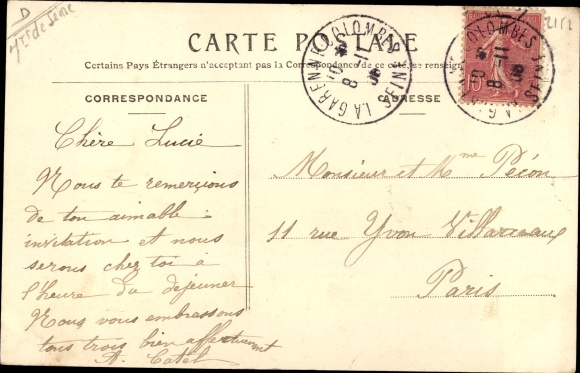 D
CARTE POSTALE
Certains Pays Étrangers n'acceptant pas la Correspondance de ce côté, se renseign
CORRESPONDANCE
Chère Lucie
Nous te remercions
de ton aimable
invitation et nous
serons chez toi à
l'heure du déjeuner
Nous vous embrassons
tous trois bien affectueusement
A. Catel
LA GARENNE-COLOMBES SEINE
10
8 -11
06
ADRESSE
Monsieur et Mme
11 rue Yvon Villarceaux
Paris
COLOMBES SEINE
8 -11
06
15